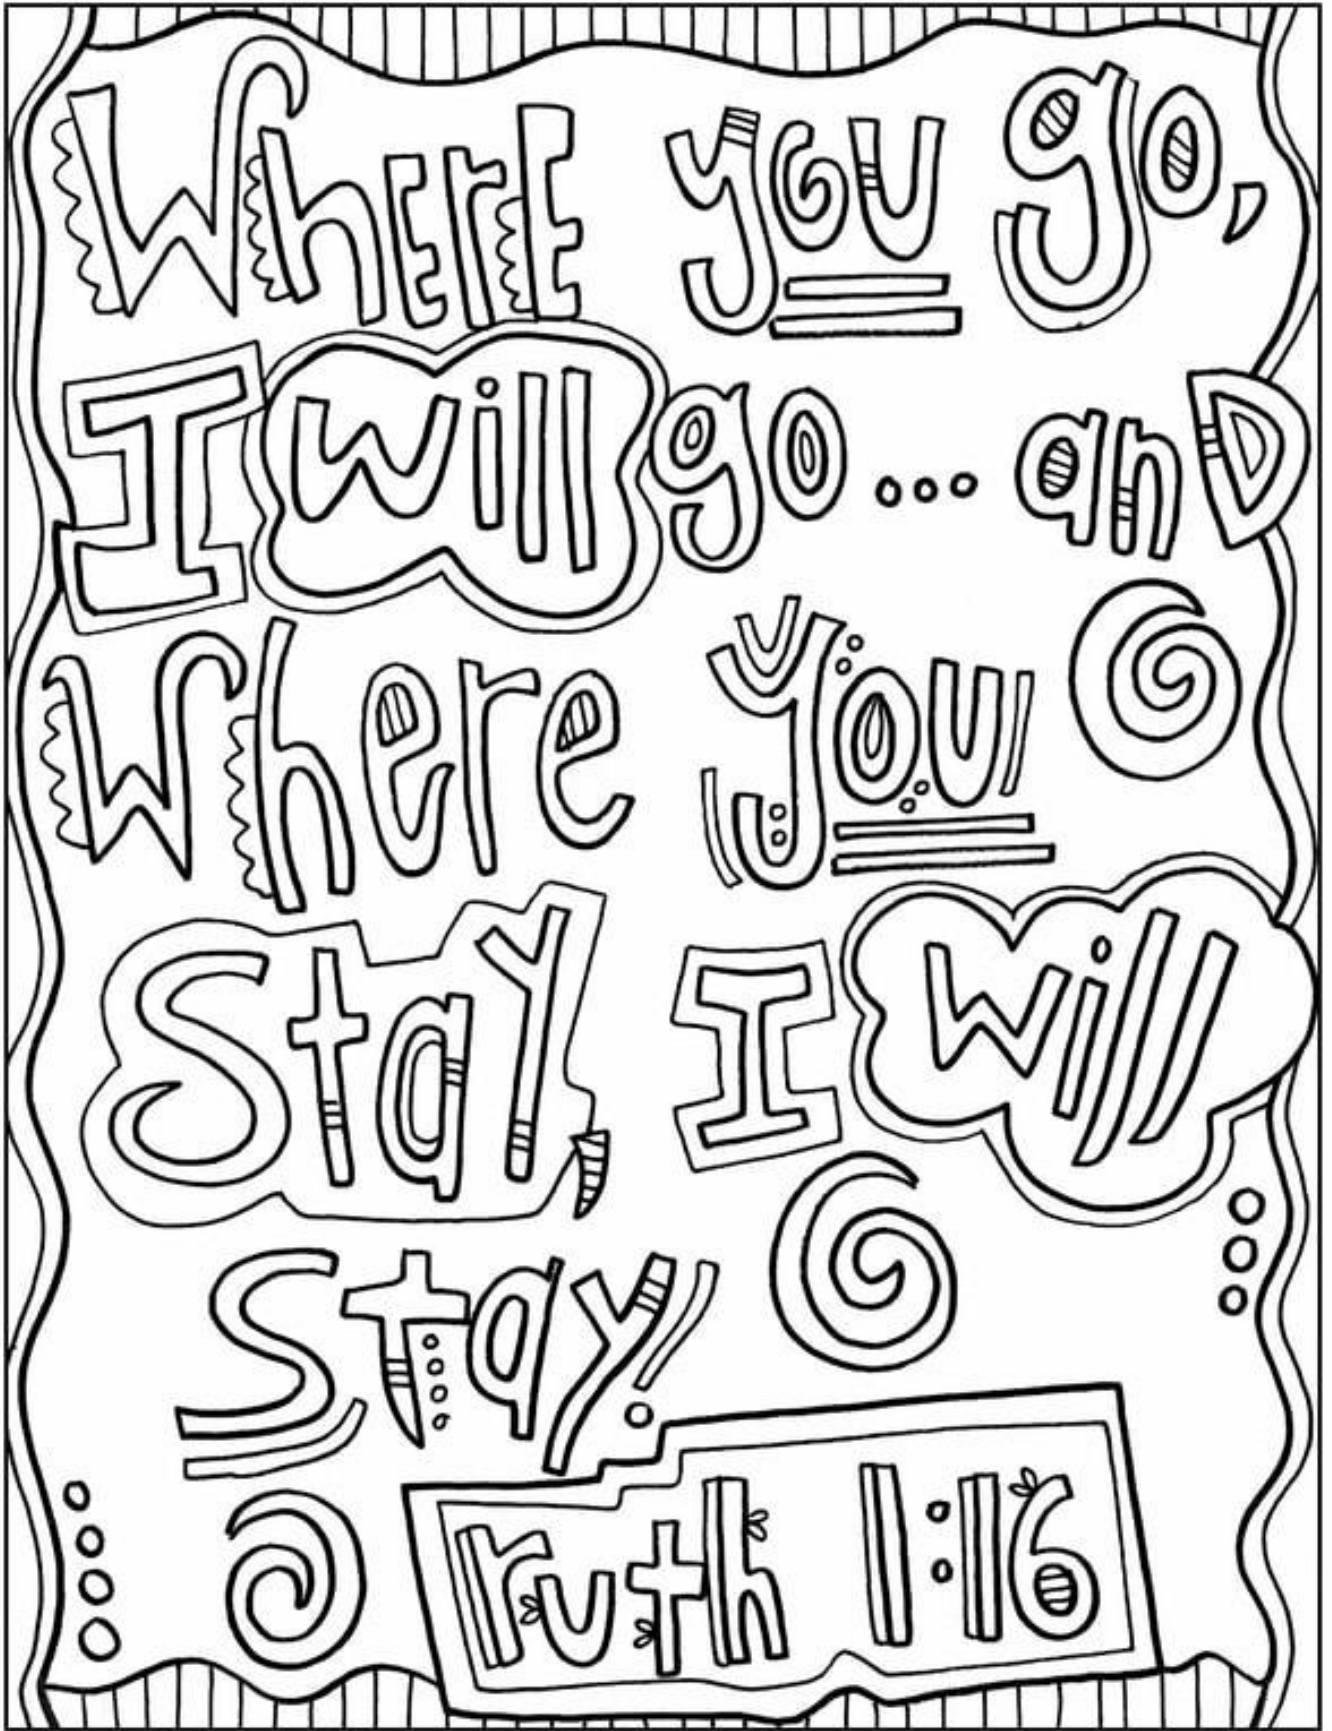 Where you go,
I will go... and
Where you
Stay, I will
Stay.
ruth 1:16